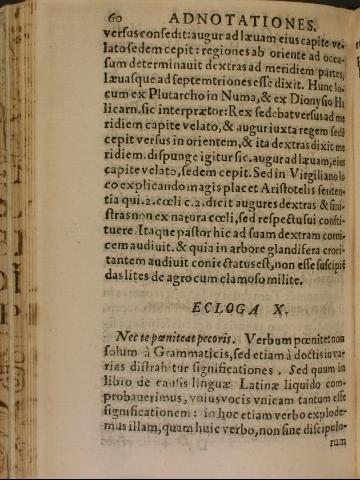 60 ADNOTATIONES.
versus consedit: augur ad læuam eius capite ve-
lato sedem cepit: regiones ab oriente ad occa-
sum determinauit dextras ad meridiem partes,
læuasque ad septemtriones esse dixit. Hunc lo-
cum ex Plutarcho in Numa, & ex Dionysio Hi
licarn. sic interprætor: Rex sedebat versus ad me
ridiem capite velato, & augur iuxta regem sedē
cepit versus in orientem, & ita dextras dixit me
ridiem. dispunge igitur sic. augur ad læuam, eius
capite velato, sedem cepit. Sed in Virgiliano lo
co explicando magis placet Aristotelis senten-
tia qui. 2. cœli c. 2. dicit augures dextras & sini-
stras non ex natura cœli, sed respectu sui consti-
tuere. Itaque pastor hic ad suam dextram corni-
cem audiuit. & quia in arbore glandifera croci-
tantem audiuit coniectatus est, non esse suscipiē
das lites de agro cum clamoso milite.
ECLOGA X.
Nec te pœniteat pecoris. Verbum pœnitet non
solum à Grammaticis, sed etiam à doctis in va-
rias distrahitur significationes. Sed quum in
libro de causis linguæ Latinæ liquido com-
probauerimus, vnius vocis vnicam tantum esse
significationem: in hoc etiam verbo explode-
mus illam, quam huic verbo, non sine discipulo-
rum